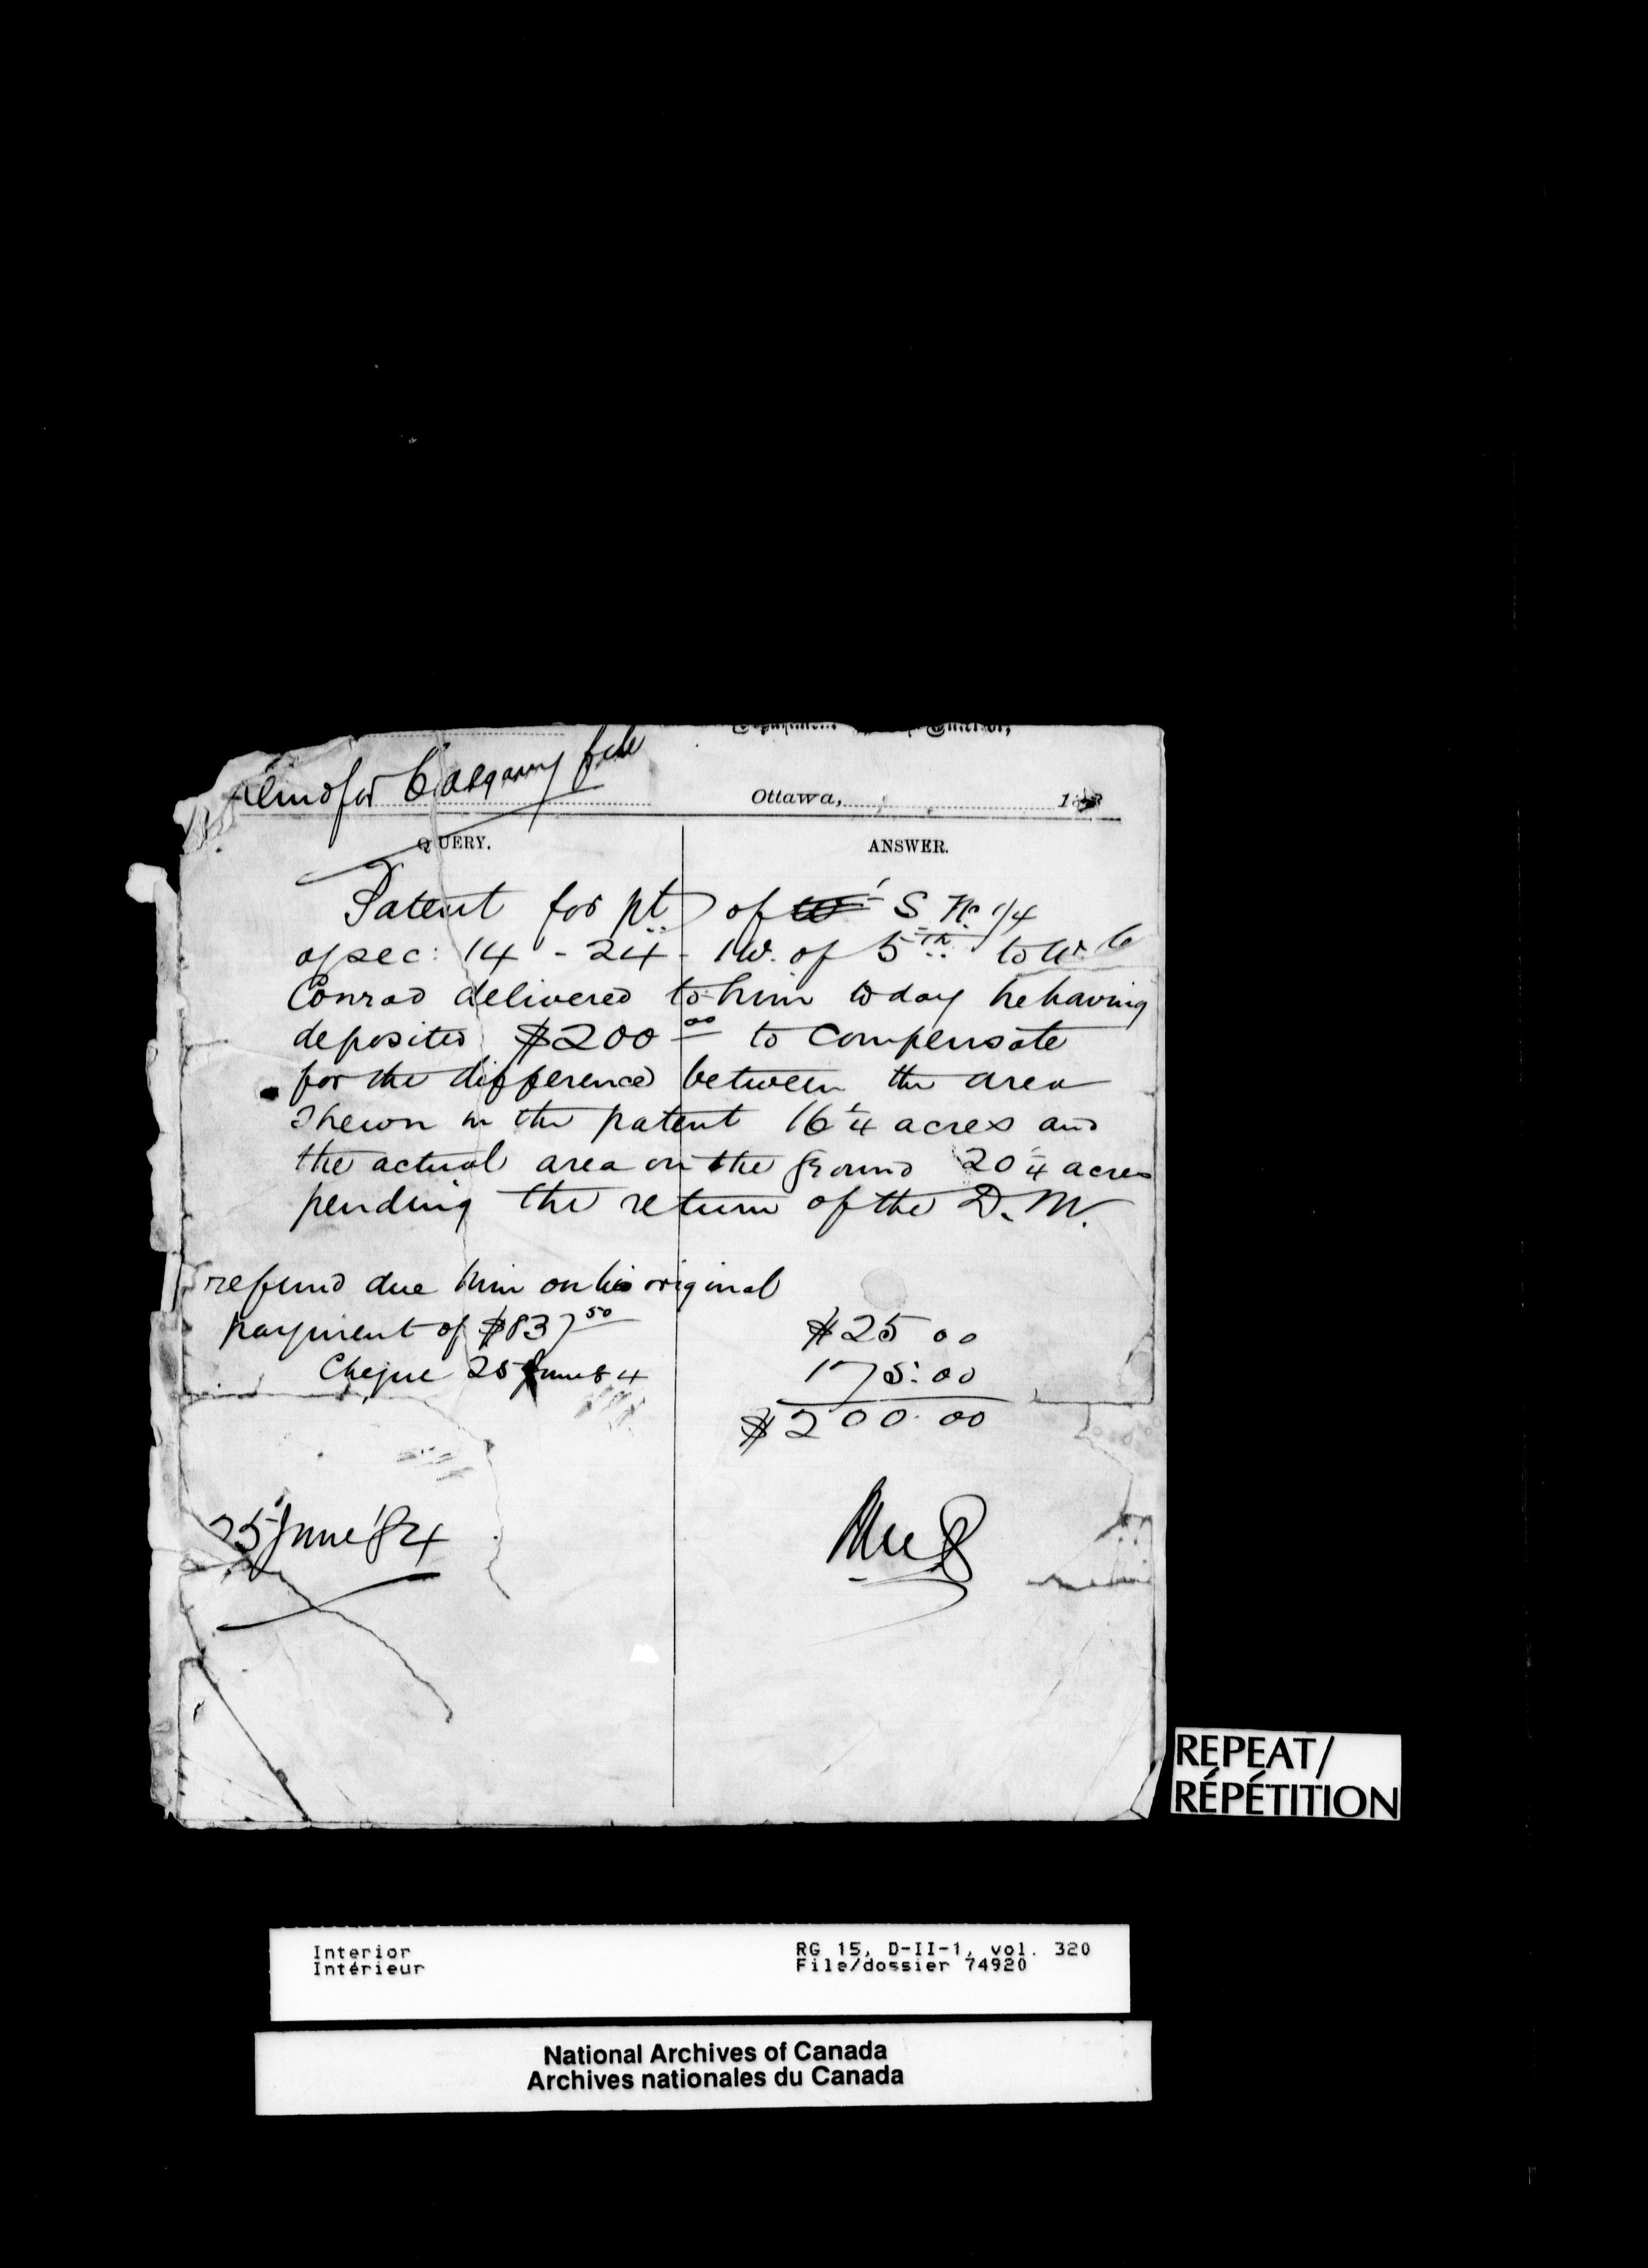 Department Interior,
Memo for Calgary file
Ottawa, 188
QUERY. ANSWER.
Patent for pt of S ½ ¼
of sec: 14 - 24 - 1 W. of 5th to W. G
Conrad delivered to him today he having
deposited $200 00 to compensate
for the difference between the area
shewn in the patent 16 ¼ acres and
the actual area on the ground 20 ¼ acres
pending the return of the D. M.
refund due him on his original
payment of $837 50 $25 00
Cheque 25 June 84 175.00
$200.00
25 June '84
REPEAT/
RÉPÉTITION
Interior RG 15, D-II-1, vol. 320
Intérieur File/dossier 74920
National Archives of Canada
Archives nationales du Canada